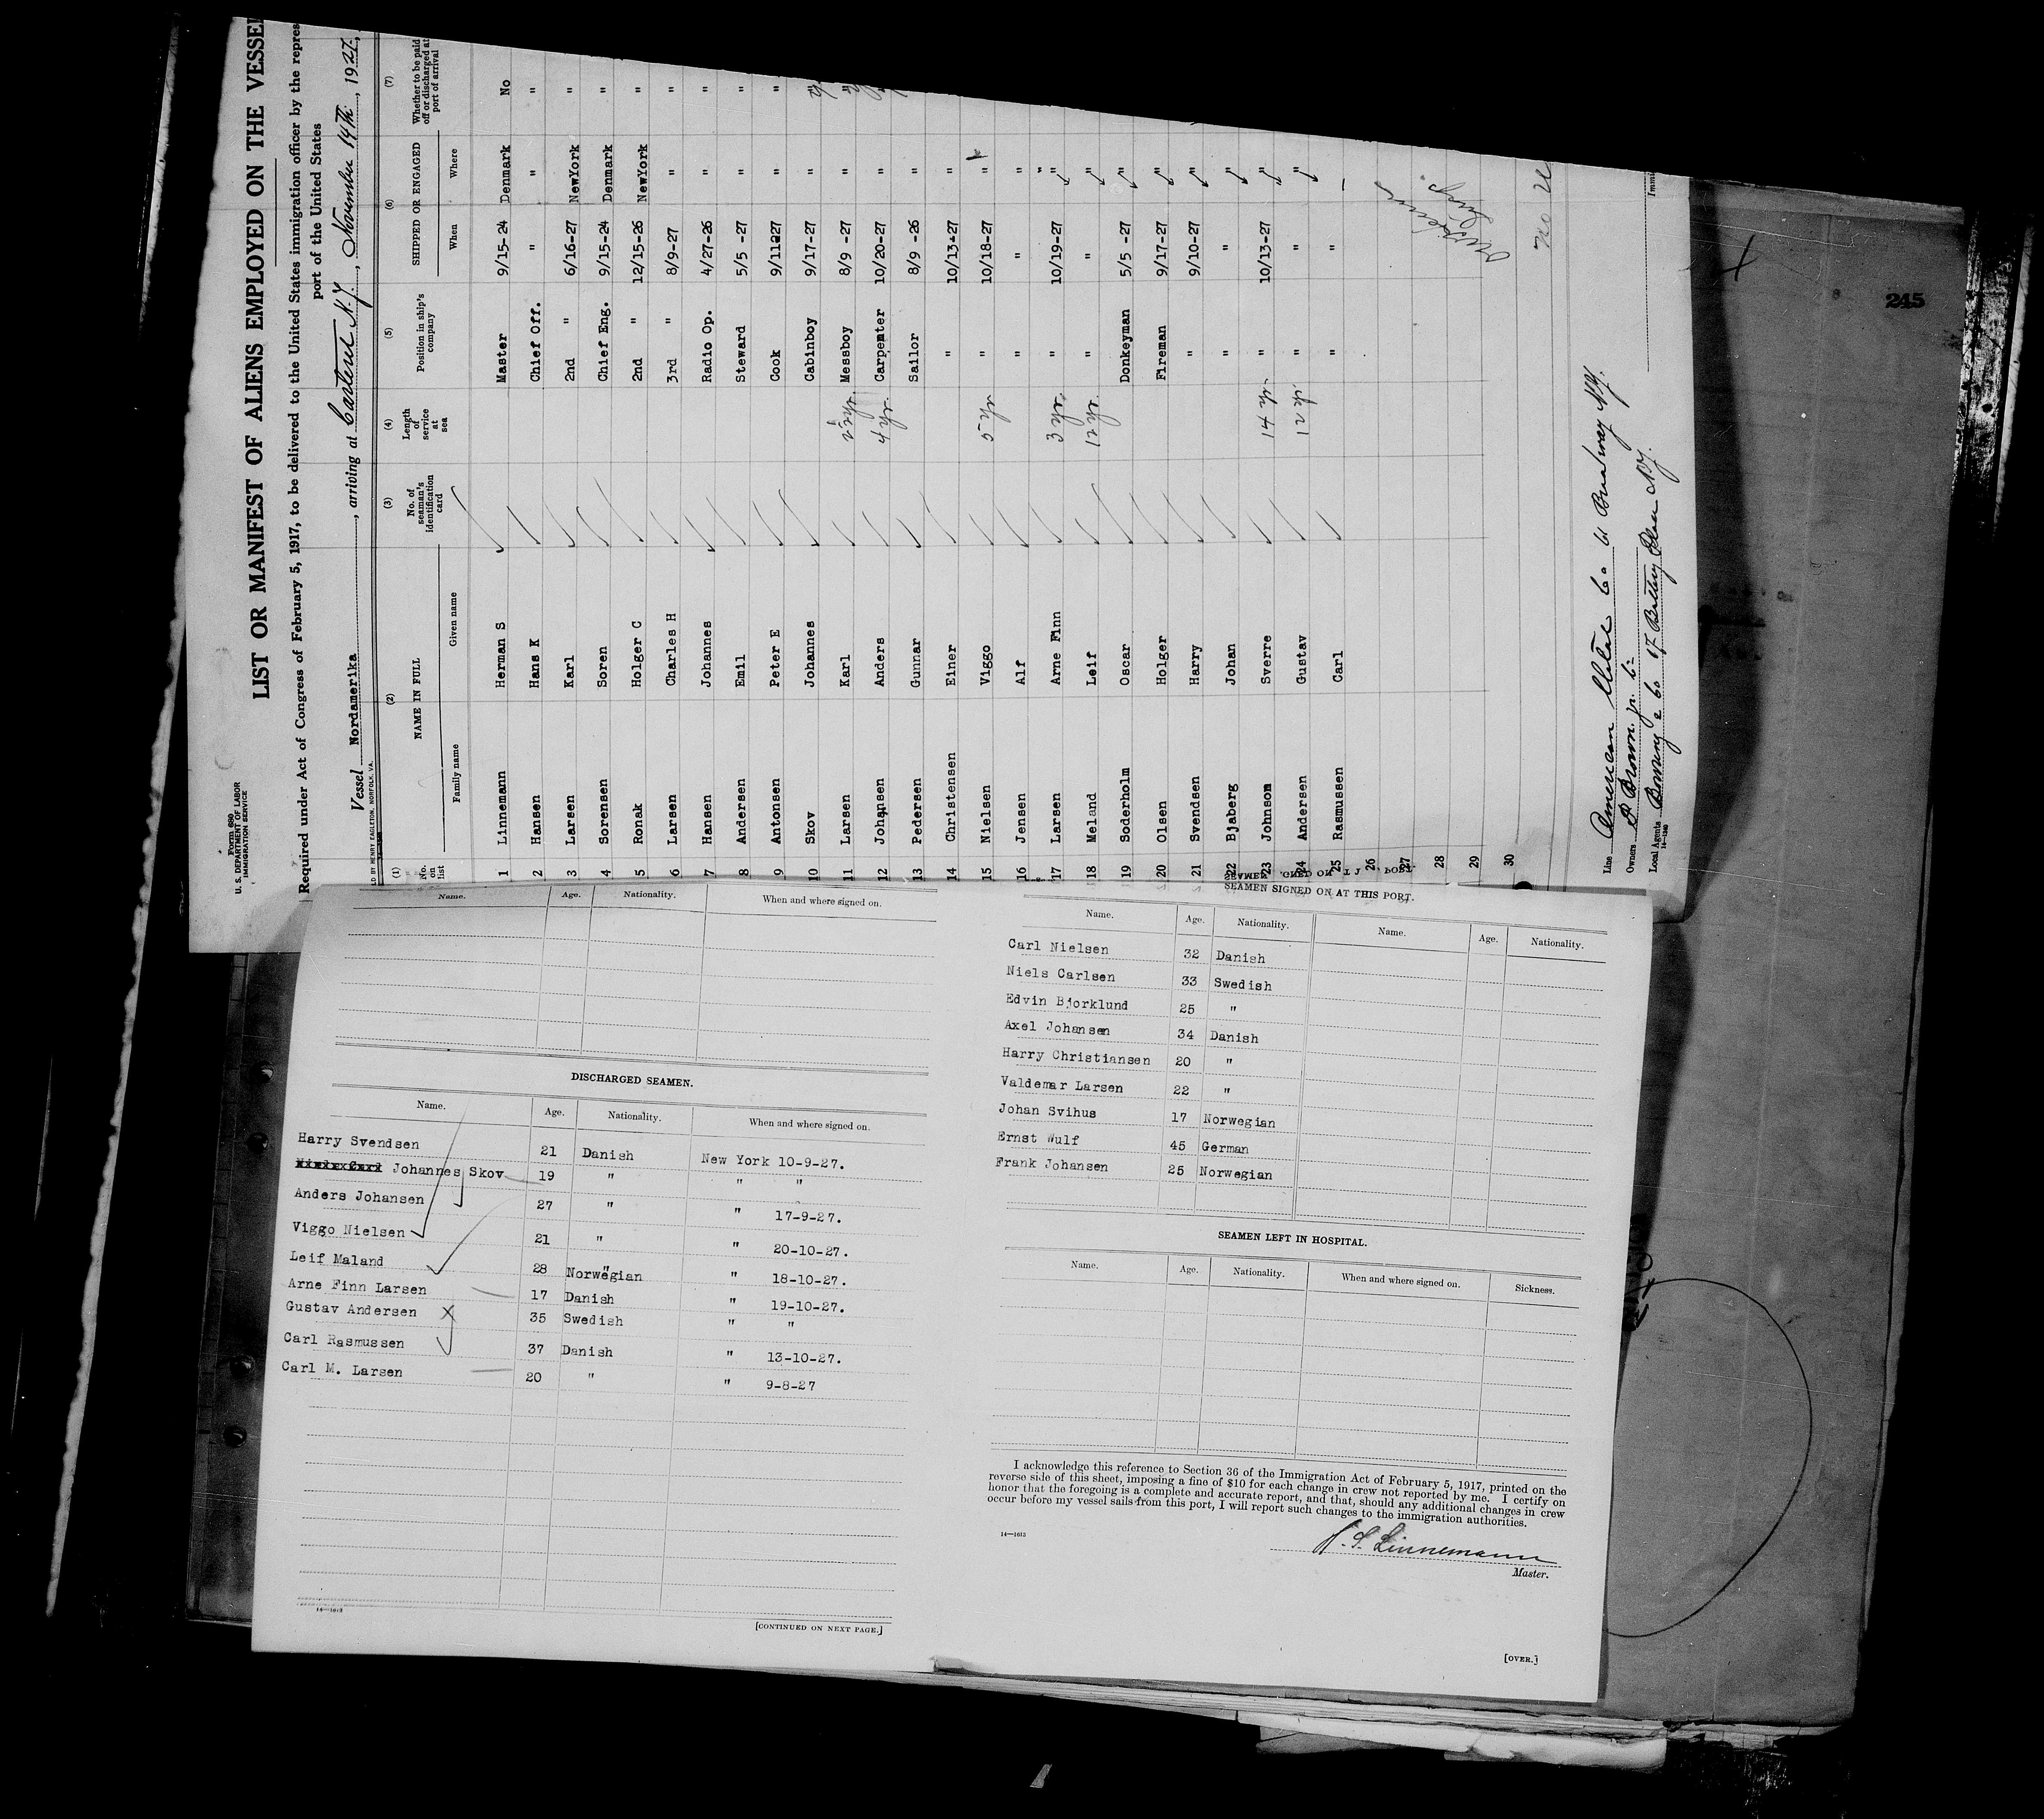 Form 680
U. S. DEPARTMENT OF LABOR
IMMIGRATION SERVICE
LIST OR MANIFEST OF ALIENS EMPLOYED ON THE VESSEL
Required under Act of Congress of February 5, 1917, to be delivered to the United States immigration officer by the repres
port of the United States
Vessel Nordamerika, arriving at Carteret N.J., November 14th, 1927,
LD BY HENRY EAGLETON, NORFOLK, VA.
(1) (2) (3) (4) (5) (6) (7)
No. on list NAME IN FULL No. of seaman's identification card Length of service at sea Position in ship's company SHIPPED OR ENGAGED Whether to be paid off or discharged at port of arrival
Family name Given name When Where
1 Linnemann Herman S Master 9/15-24 Denmark No
2 Hansen Hans K Chief Off. " " "
3 Larsen Karl 2nd " 6/16-27 NewYork "
4 Sorensen Soren Chief Eng. 9/15-24 Denmark "
5 Ronak Holger C 2nd " 12/15-26 NewYork "
6 Larsen Charles H 3rd " 8/9-27 " "
7 Hansen Johannes Radio Op. 4/27-26 " "
8 Andersen Emil Steward 5/5 -27 " "
9 Antonsen Peter E Cook 9/11-27 " "
10 Skov Johannes Cabinboy 9/17-27 " "
11 Larsen Karl Messboy 8/9 -27 " "
12 Johansen Anders 4 yr. Carpenter 10/20-27 " "
13 Pedersen Gunnar Sailor 8/9 -26 "
14 Christensen Einer " 10/13-27 "
15 Nielsen Viggo 5 yr " 10/18-27 "
16 Jensen Alf " " "
17 Larsen Arne Finn 3 yr. " 10/19-27 "
18 Meland Leif 12 yr. " " "
19 Soderholm Oscar Donkeyman 5/5 -27 "
20 Olsen Holger Fireman 9/17-27 "
21 Svendsen Harry " 9/10-27 "
22 Bjaberg Johan " " "
23 Johnsom Sverre 14 yr. " 10/13-27 "
24 Andersen Gustav 12 yr. " " "
25 Rasmussen Carl " "
26
27
28
29
30
Line American Co 61 Broadway N.Y.
Owners
Local Agents Co 17 Battery Place N.Y.
14—1240
Immi
245
Name. Age. Nationality. When and where signed on.
DISCHARGED SEAMEN.
Name. Age. Nationality. When and where signed on.
Harry Svendsen 21 Danish New York 10-9-27.
Johannes Skov 19 " " "
Anders Johansen 27 " " 17-9-27.
Viggo Nielsen 21 " " 20-10-27.
Leif Maland 28 Norwegian " 18-10-27.
Arne Finn Larsen 17 Danish " 19-10-27.
Gustav Andersen 35 Swedish " "
Carl Rasmussen 37 Danish " 13-10-27.
Carl M. Larsen 20 " " 9-8-27
14—1613
[CONTINUED ON NEXT PAGE.]
SEAMEN SIGNED ON AT THIS PORT.
Name. Age. Nationality. Name. Age. Nationality.
Carl Nielsen 32 Danish
Niels Carlsen 33 Swedish
Edvin Bjorklund 25 "
Axel Johansen 34 Danish
Harry Christiansen 20 "
Valdemar Larsen 22 "
Johan Svihus 17 Norwegian
Ernst Wulf 45 German
Frank Johansen 25 Norwegian
SEAMEN LEFT IN HOSPITAL.
Name. Age. Nationality. When and where signed on. Sickness.
I acknowledge this reference to Section 36 of the Immigration Act of February 5, 1917, printed on the
reverse side of this sheet, imposing a fine of $10 for each change in crew not reported by me. I certify on
honor that the foregoing is a complete and accurate report, and that, should any additional changes in crew
occur before my vessel sails from this port, I will report such changes to the immigration authorities.
14—1613
H. S. Linnemann
Master.
[OVER.]